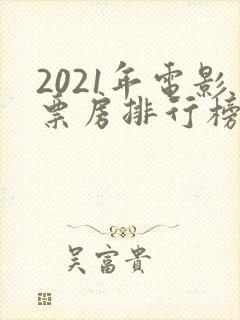 2021年電影
票房排行榜
吴富貴